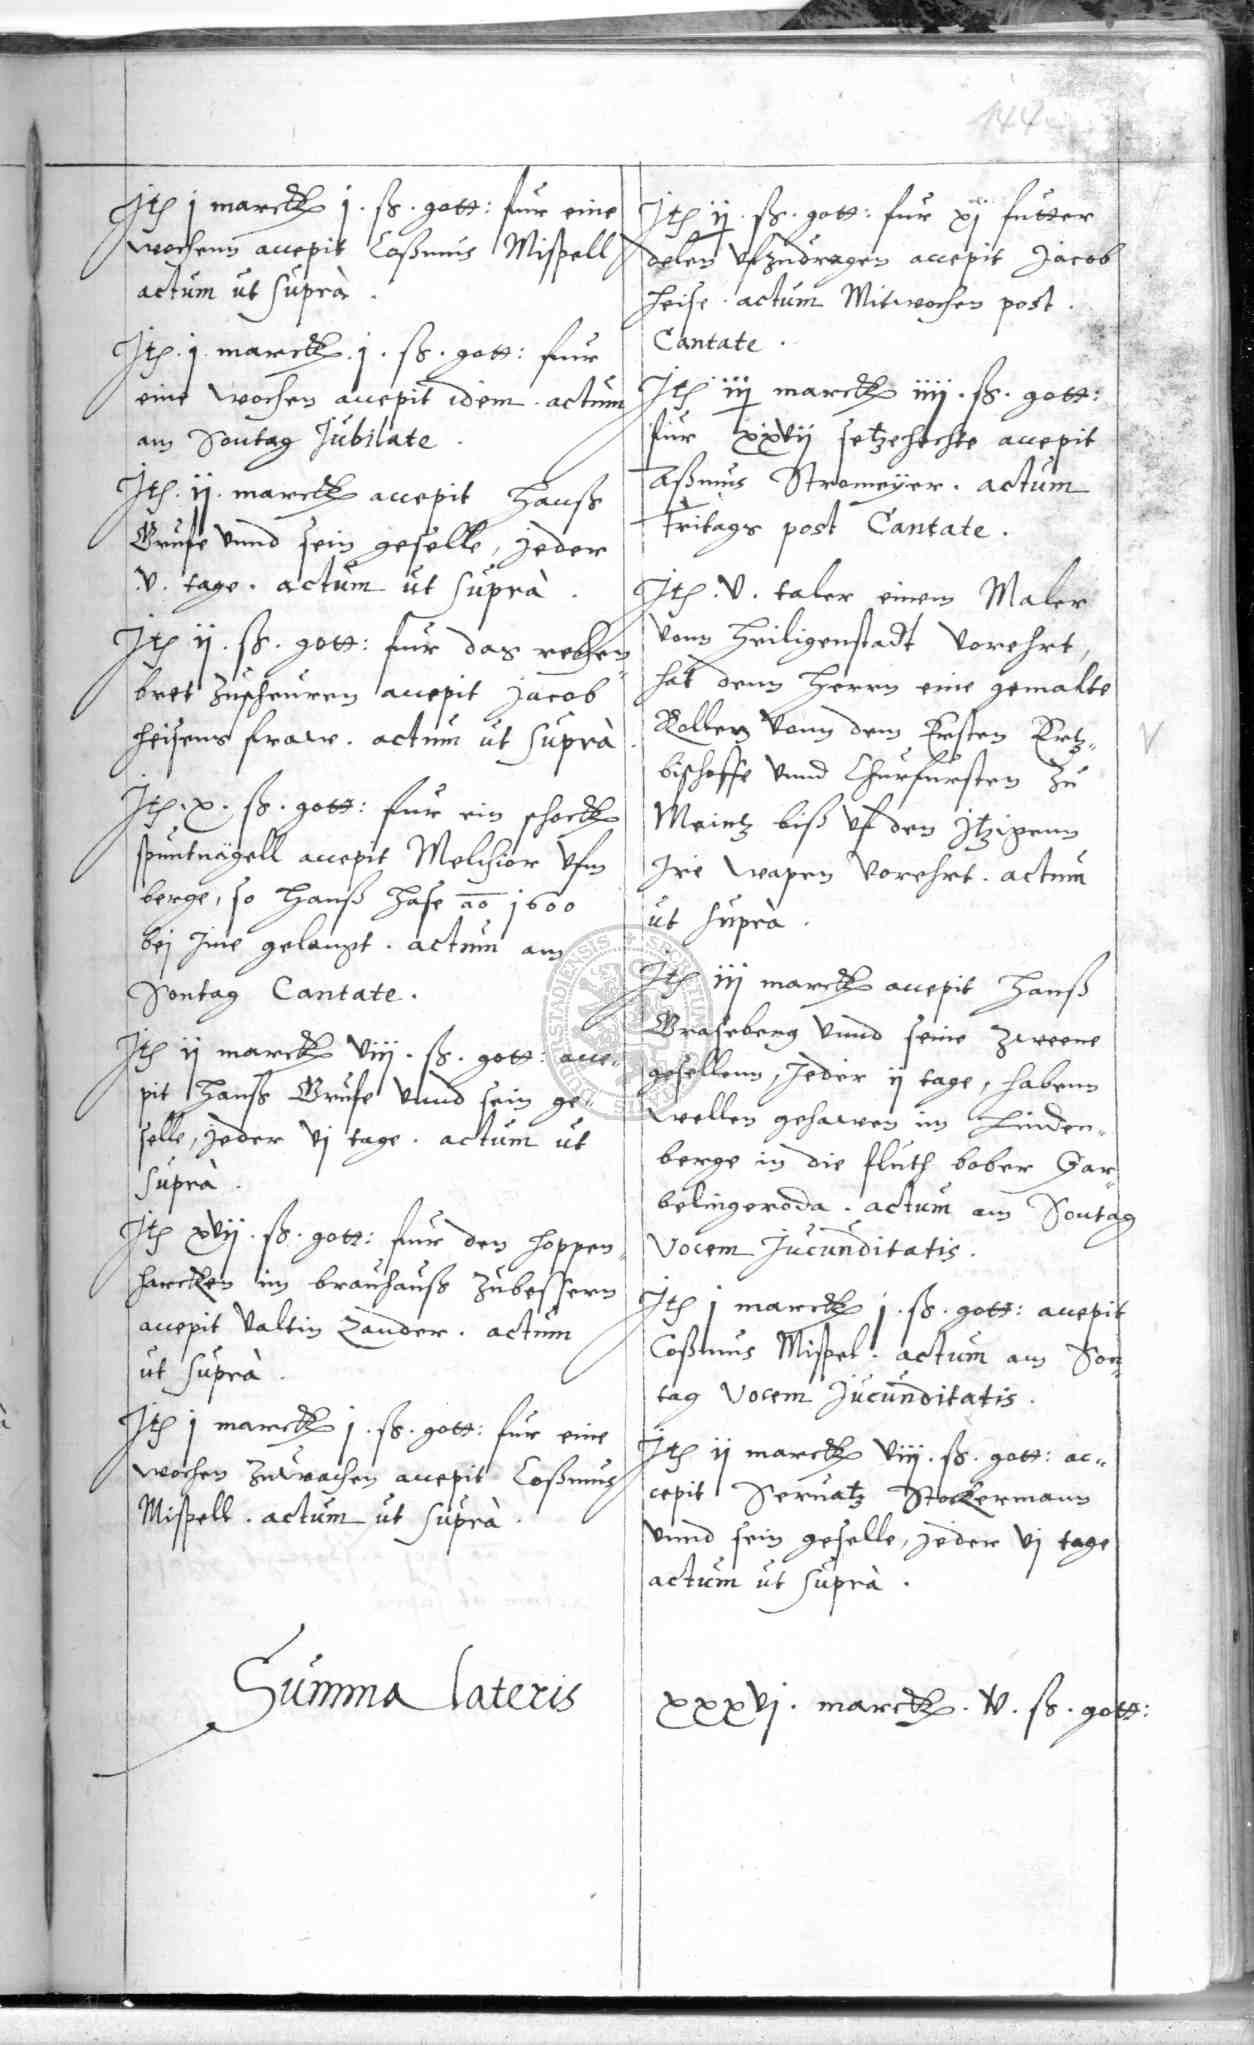 144
Jtem j marck j. ß. gott: fur eine
wochenn accepit Coßmus Mispell
actum ut suprà.
Jtem. j marck. j. ß. gott: fur
eine wochen accepit idem. actum
am Sontag Jubilate.
Jtem. ij. marck accepit Hanß
Grufe vnnd sein geselle, jeder
.v. tage. actum ut suprà.
Jtem ij. ß. gott: fur das rechen=
bret zuscheuren accepit Jacob
Heisens fraw. actum ut suprà.
Jtem. x. ß. gott: fur ein schock
spuntnägell accepit Melchior vfm
berge, so Hanß Hase ao 1600
bej Jme gelangt. actum am
Sontag Cantate.
Jtem ij marck viij. ß. gott: acce=
pit Hanß Grufe vnnd sein ge=
selle, jeder vj tage. actum ut
suprà.
Jtem xvij. ß. gott: fur den hoppen=
harcken im brauhauß zubessern
accepit Valtin Zander. actum
ut suprà.
Jtem j marck j. ß. gott: fur eine
wochen zuwachen accepit Coßmus
Mispell. actum ut suprà.
Jtem ij. ß. gott: fur xj futter
delen vfzudragen accepit Jacob
Heise. actum Mitwochen post.
Cantate.
Jtem iij marck iiij. ß. gott:
fur xxvij setzehechte accepit
Aßmus Stromeÿer. actum
Fritags post Cantate.
Jtem. v. taler einem Maler
vonn Heiligenstadt vorehrt,
hat denn Herrn eine gemalte
Rollen vonn dem Ersten Ertz=
bischoffe vnnd Churfursten zu
Meintz biß vf den Jtzigenn
Jre wapen vorehrt. actum
ut suprà.
Jtem iij marck accepit Hanß
Graseberg vnnd seine zweene
gesellenn, Jeder ij tage, habenn
wellen gehawen im Linden=
berge in die fluth bober Gar=
belingeroda. actum am Sontag
Vocem Jucunditatis.
Jtem j marck j. ß. gott: accepit
Coßmus Mispel. actum am Son=
tag Vocem Jucunditatis.
Jtem ij marck viij. ß. gott: ac=
cepit Seruatz Stockermann
vnnd sein geselle, jeder vj tage
actum ut suprà.
Summa lateris
xxxvj. marck. v. ß. gott: